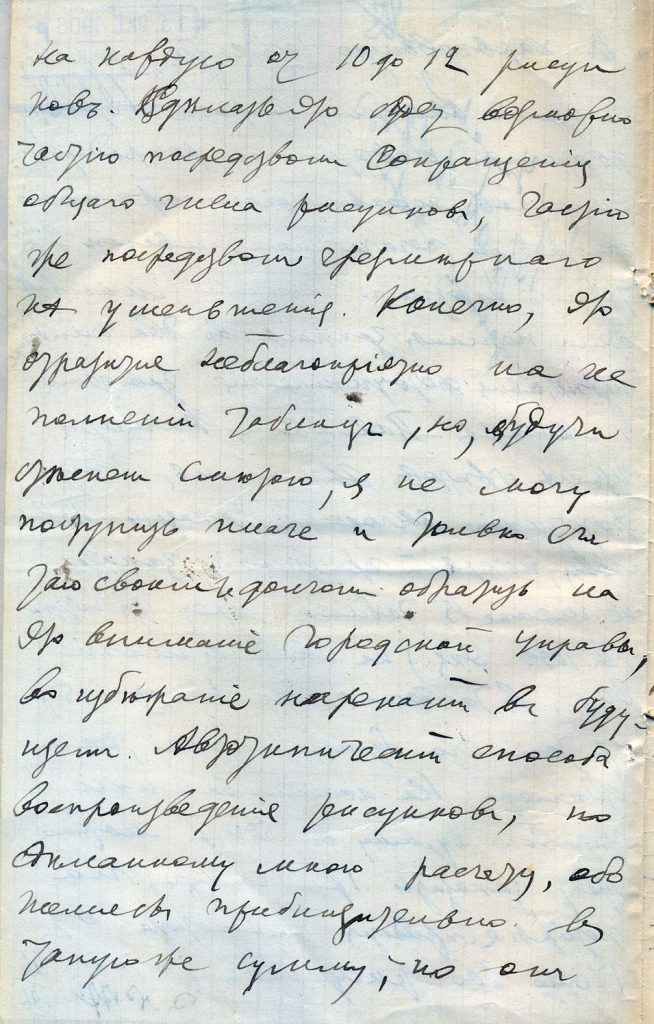 на каждую от 10 до 12 рисун
ковъ. Сдѣлать это будет возможно
частію посредствомъ сокращенія
общаго числа рисунковъ, частію
же посредствомъ чрезмѣрнаго
их уменьшенія. Конечно, это
отразится неблагопріятно на ис
полненіи таблицъ, но, будучи
стѣсненъ смѣтою, я не могу
поступить иначе и только счи
таю своимъ долгомъ обратить на
это вниманіе городской управы,
во избѣжаніе нареканій въ буду-
щемъ. Автотипическій способъ
воспроизведенія рисунковъ, по
сдѣланному мною расчету, обо
шелся бы приблизительно въ
такую же сумму, но онъ